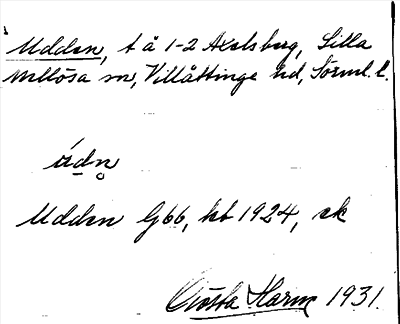 Udden, t å 1-2 Axelsberg, Lilla
Mellösa sn, Villåttinge hd, Sörml. l.
ùdn̥
Udden G66, kb 1924, ek
Gösta Harm 1931.